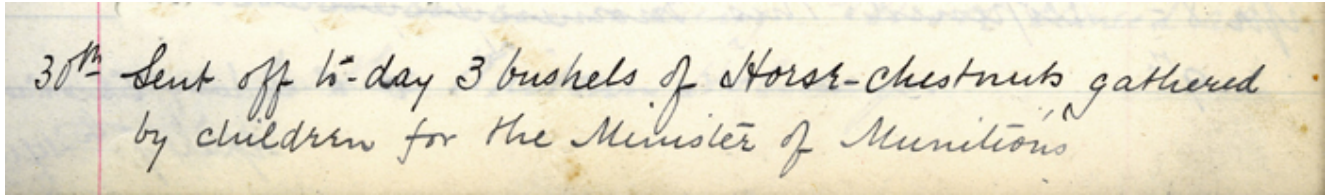 30th Sent off to-day 3 bushels of Horse-chestnuts gathered
by children for the Minister of Munitions